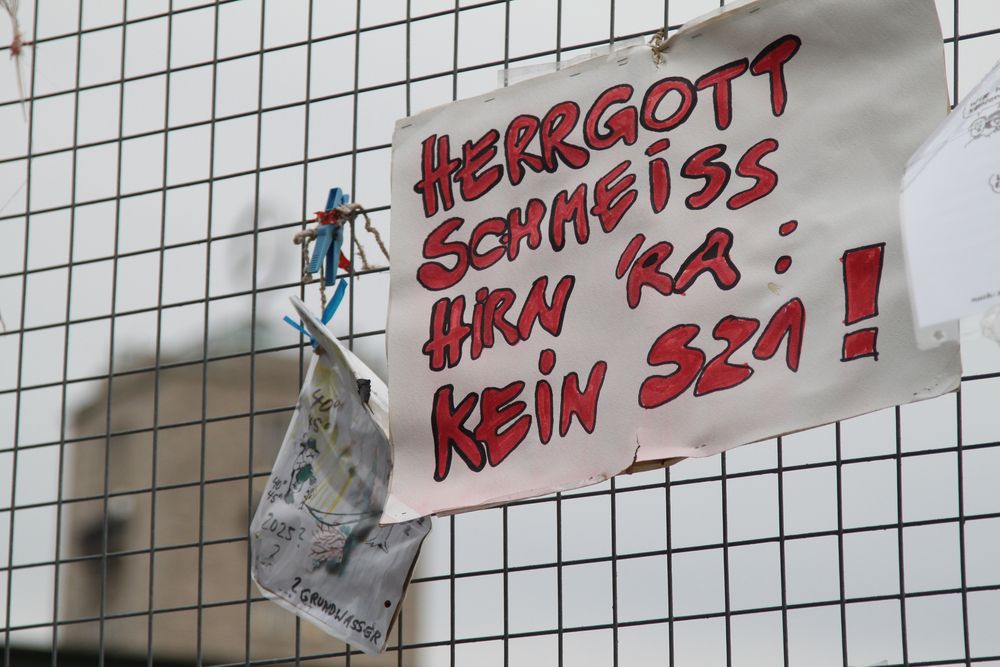 HERRGOTT
SCHMEISS
HIRN 'RA :
KEIN S21 !
40°
45°
40°
45°
2025?
?
? GRUNDWASSER